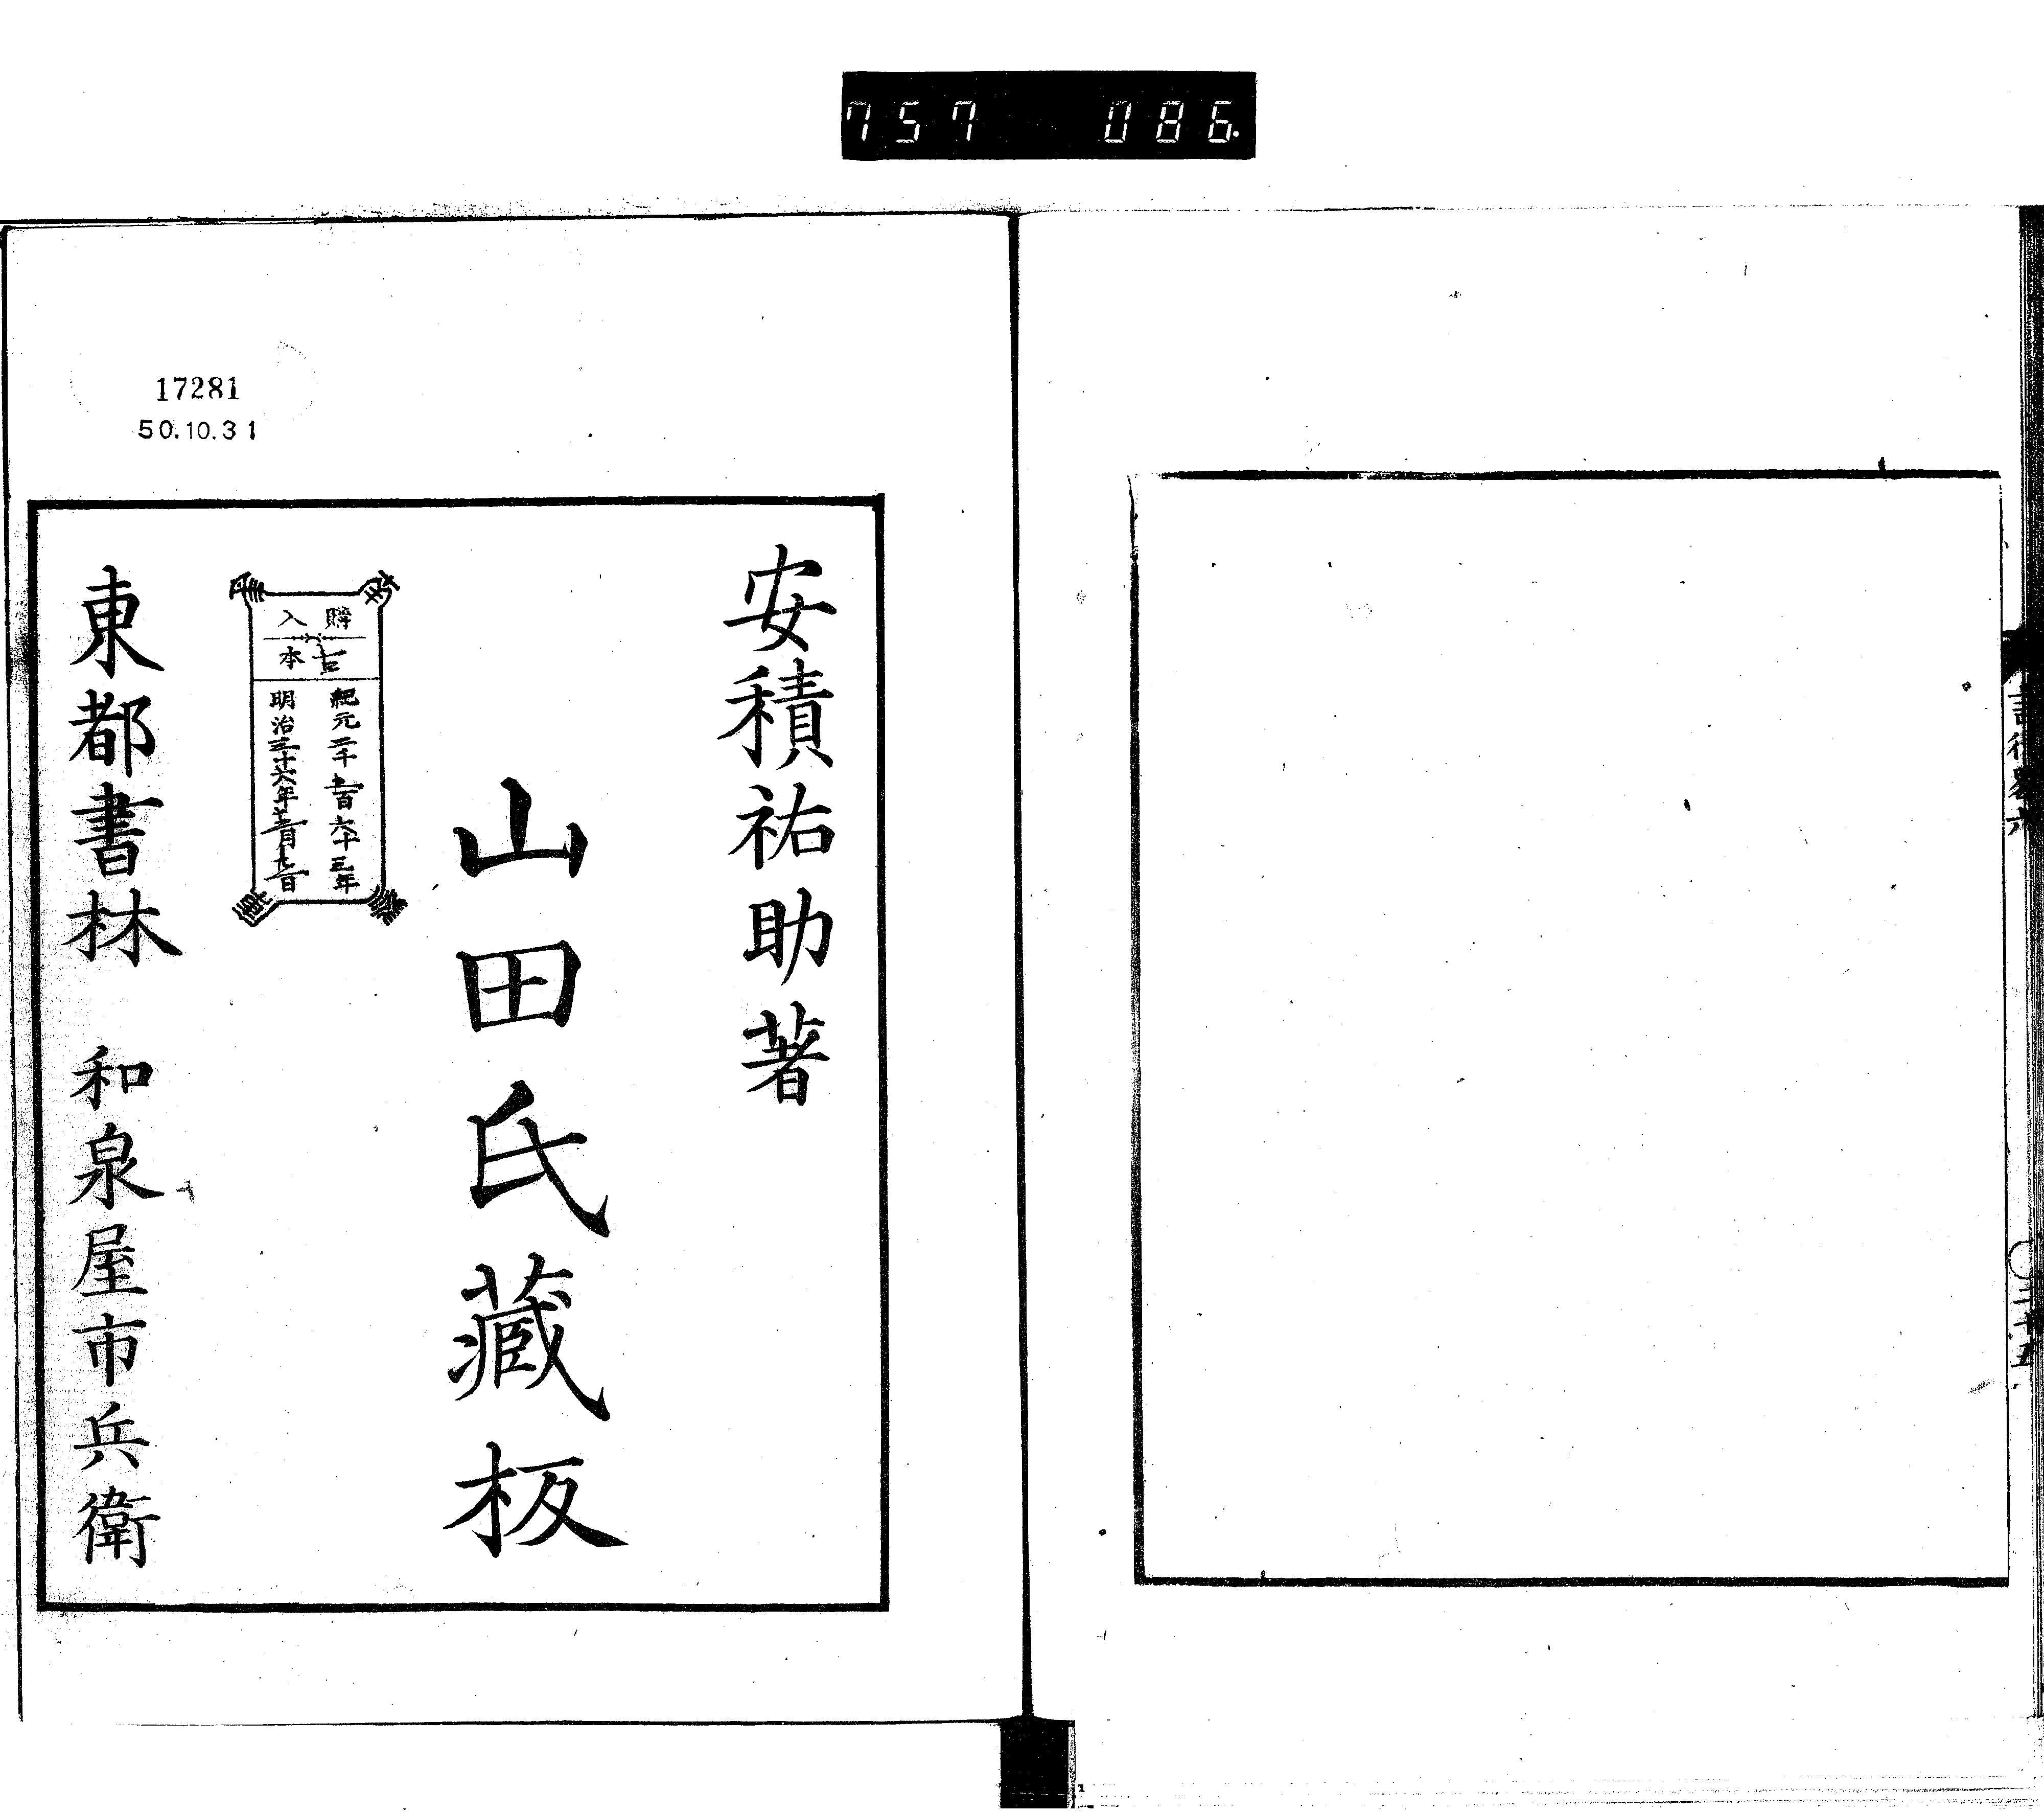 757 086.
安積祐助著
山田氏藏板
購入
古本
紀元二千五百六十三年
明治三十六年
17281
50.10.31
東都書林 和泉屋市兵衛